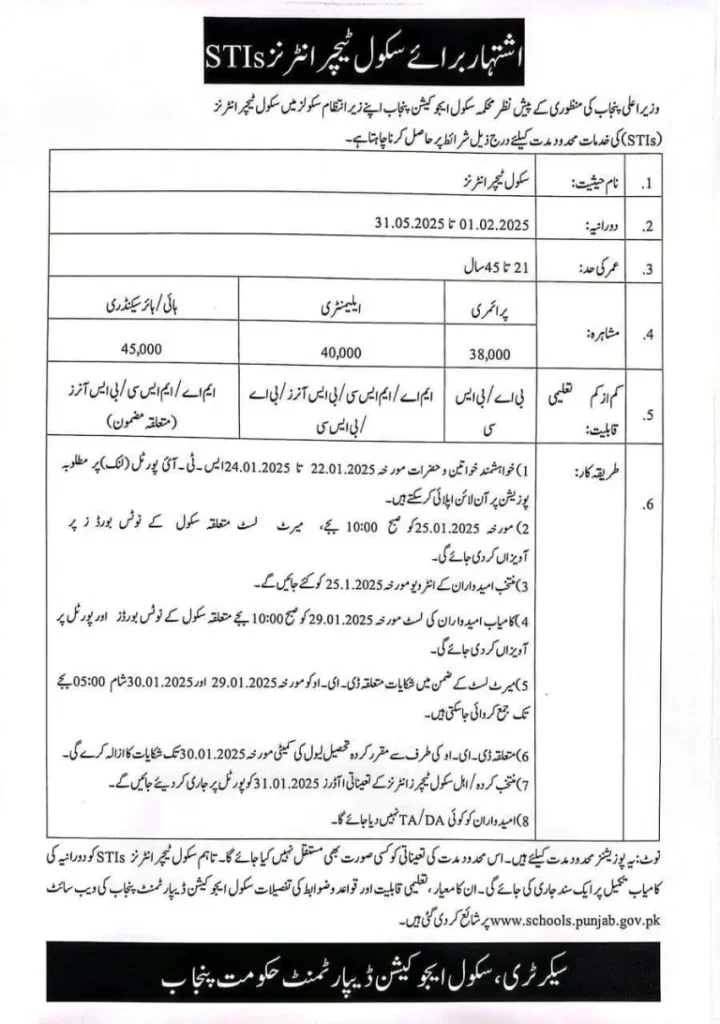 اشتہار برائے سکول ٹیچر انٹرنز STIs
وزیر اعلی پنجاب کی منظوری کے پیش نظر محکمہ سکول ایجوکیشن پنجاب اپنے زیر انتظام سکولز میں سکول ٹیچر انٹرنز
(STIs) کی خدمات محدود مدت کیلئے درج ذیل شرائط پر حاصل کرنا چاہتا ہے۔
1. نام حیثیت: سکول ٹیچر انٹرنز
2. دورانیہ: 01.02.2025 تا 31.05.2025
3. عمر کی حد: 21 تا 45 سال
4. مشاہرہ: پرائمری ایلیمنٹری ہائی/ہائر سیکنڈری
38,000 40,000 45,000
5. کم از کم تعلیمی قابلیت: بی اے/بی ایس سی ایم اے/ایم ایس سی/بی ایس آنرز/بی اے /بی ایس سی ایم اے/ایم ایس سی/بی ایس آنرز (متعلقہ مضمون)
6. طریقہ کار:
1) خواہشمند خواتین و حضرات مورخہ 22.01.2025 تا 24.01.2025 ایس-ٹی-آئی پورٹل (لنک) پر مطلوبہ
پوزیشن پر آن لائن اپلائی کر سکتے ہیں۔
2) مورخہ 25.01.2025 کو صبح 10:00 بجے، میرٹ لسٹ متعلقہ سکول کے نوٹس بورڈز پر
آویزاں کر دی جائے گی۔
3) منتخب امیدواران کے انٹرویو مورخہ 25.1.2025 کو کئے جائیں گے۔
4) کامیاب امیدواران کی لسٹ مورخہ 29.01.2025 کو صبح 10:00 بجے متعلقہ سکول کے نوٹس بورڈز اور پورٹل پر
آویزاں کر دی جائے گی۔
5) میرٹ لسٹ کے ضمن میں شکایات متعلقہ ڈی-ای-او کو مورخہ 29.01.2025 اور 30.01.2025 شام 05:00 بجے
تک جمع کروائی جا سکتی ہیں۔
6) متعلقہ ڈی-ای-او کی طرف سے مقرر کردہ تحصیل لیول کی کمیٹی مورخہ 30.01.2025 تک شکایات کا ازالہ کرے گی۔
7) منتخب کردہ/اہل سکول ٹیچرز انٹرنز کے تعیناتی آرڈرز 31.01.2025 کو پورٹل پر جاری کر دیئے جائیں گے۔
8) امیدواران کو کوئی TA/DA نہیں دیا جائے گا۔
نوٹ: یہ پوزیشنز محدود مدت کیلئے ہیں۔ اس محدود مدت کی تعیناتی کو کسی صورت بھی مستقل نہیں کیا جائے گا۔ تاہم سکول ٹیچر انٹرنز STIs کو دورانیہ کی
کامیاب تکمیل پر ایک سند جاری کی جائے گی۔ ان کا معیار، تعلیمی قابلیت اور قواعد و ضوابط کی تفصیلات سکول ایجوکیشن ڈیپارٹمنٹ پنجاب کی ویب سائٹ
www.schools.punjab.gov.pk پر شائع کر دی گئی ہیں۔
سیکرٹری، سکول ایجوکیشن ڈیپارٹمنٹ حکومت پنجاب